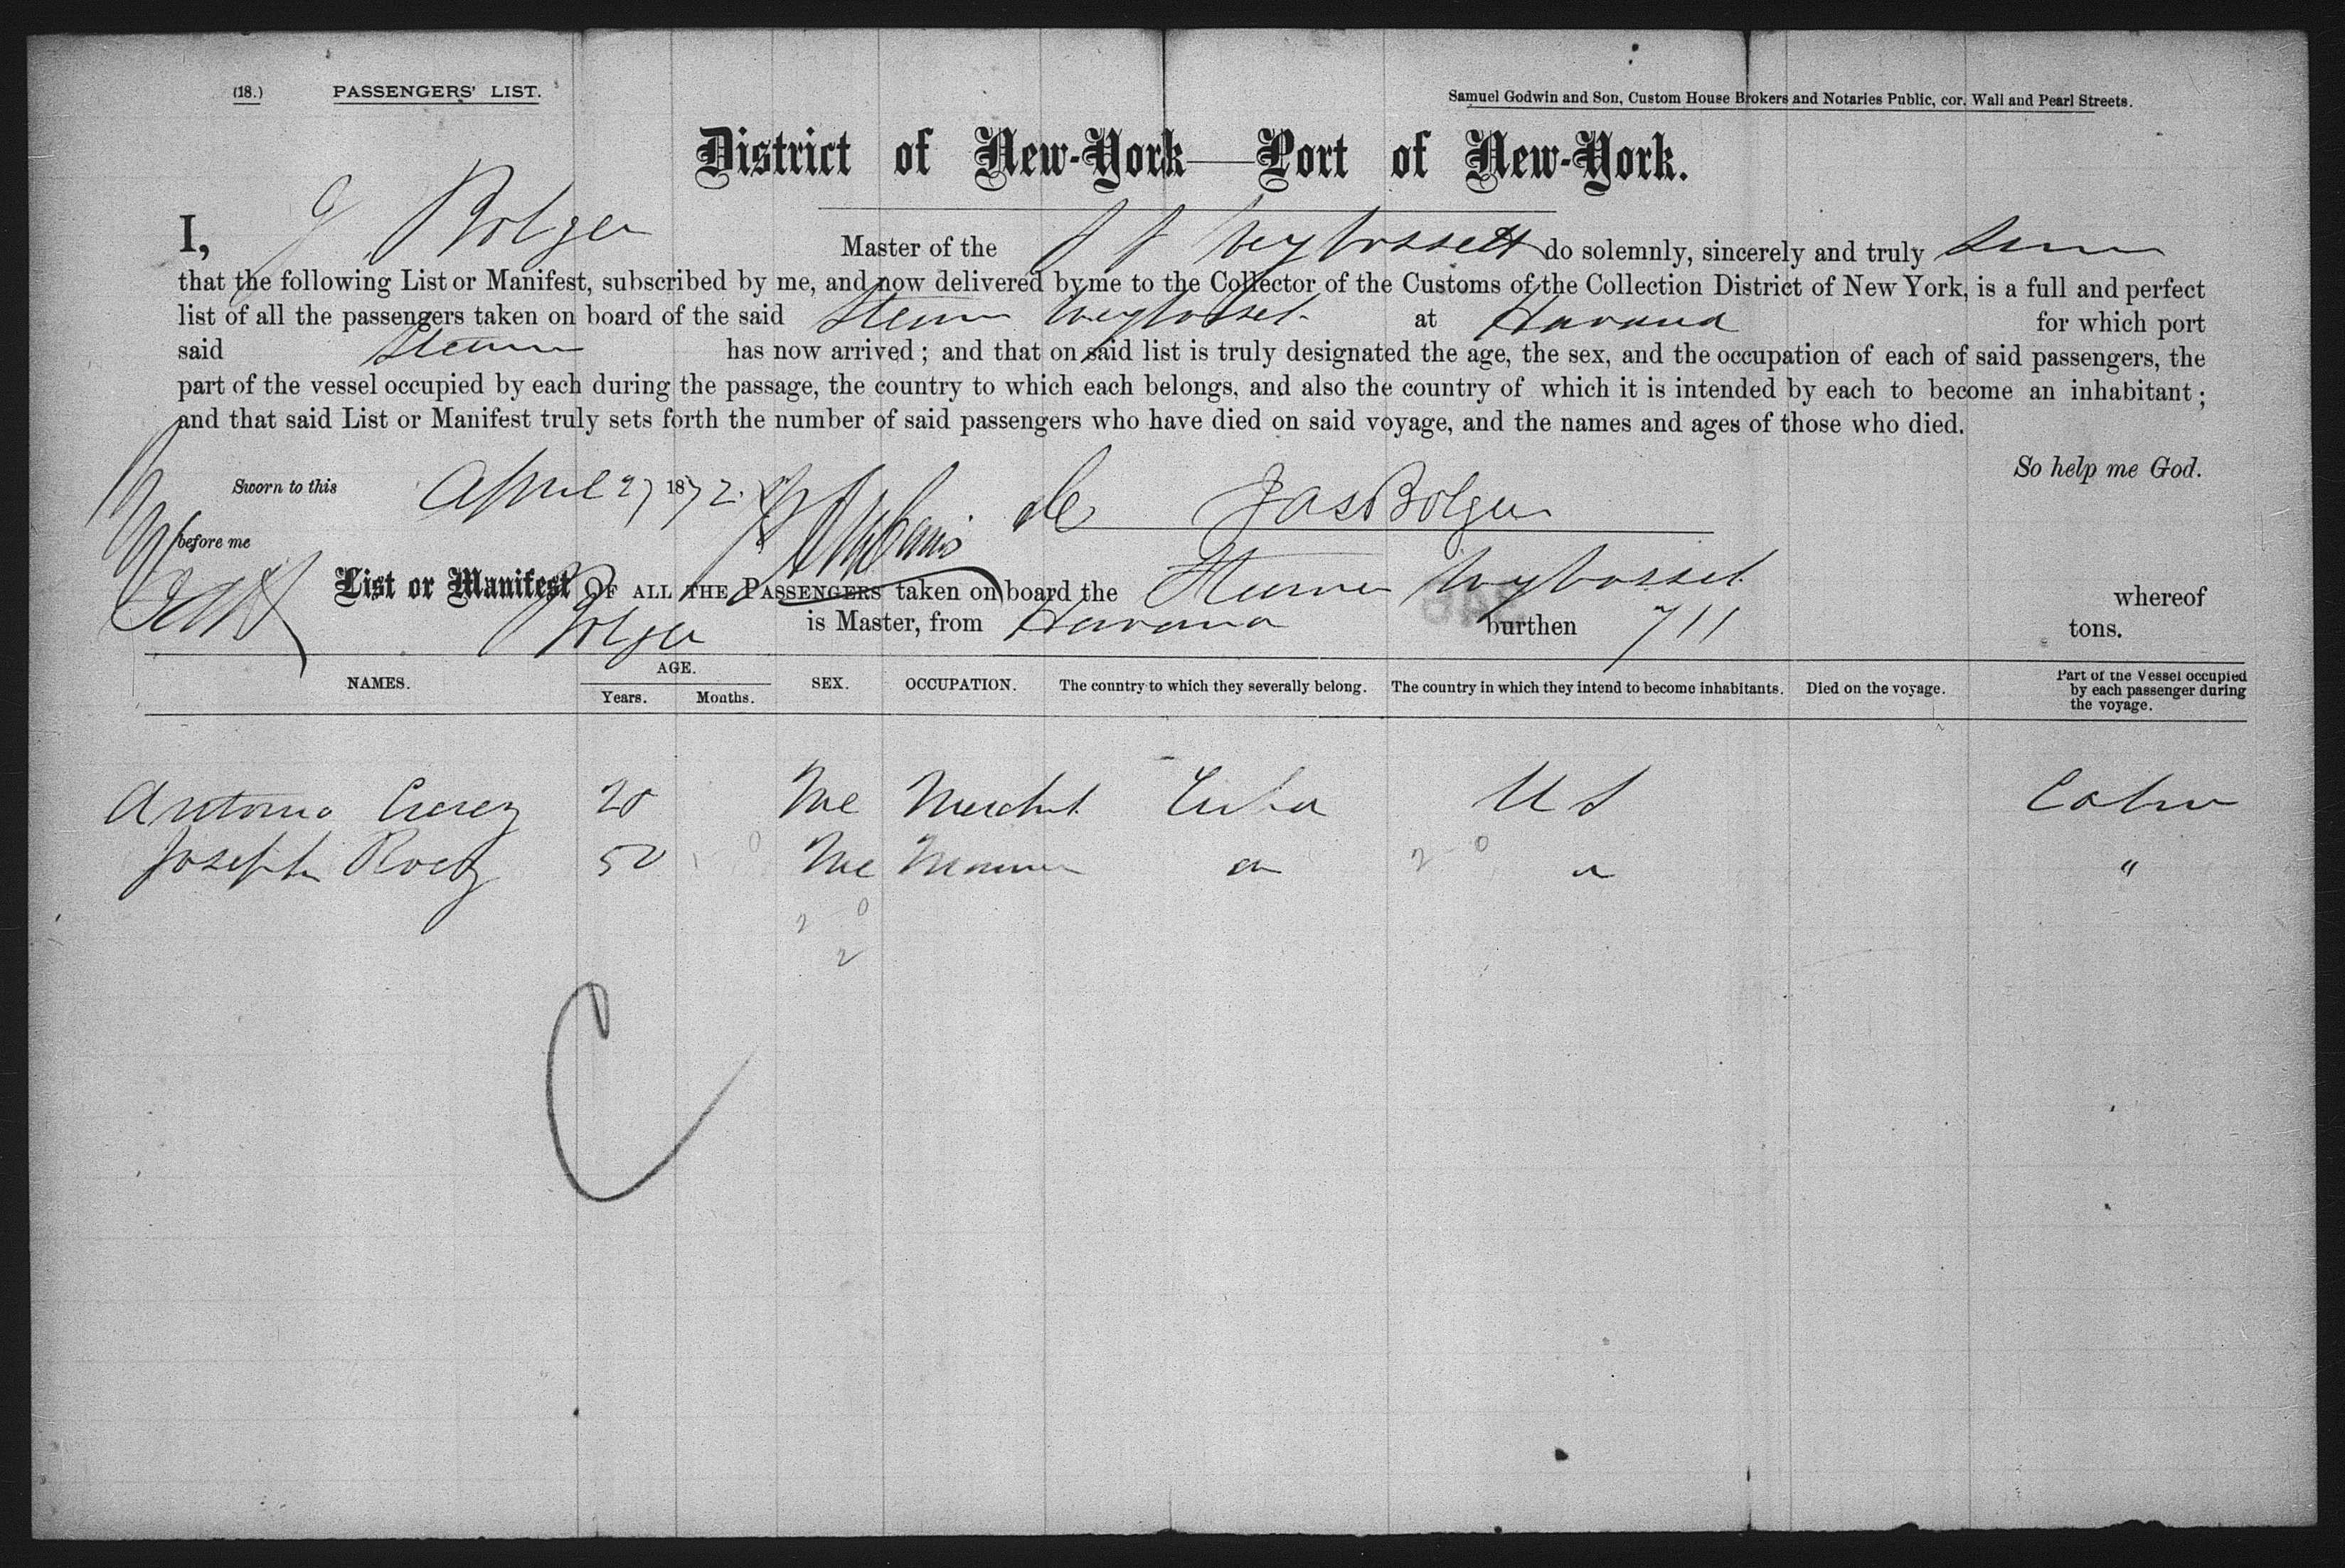 (18.) PASSENGERS' LIST.
Samuel Godwin and Son, Custom House Brokers and Notaries Public, cor. Wall and Pearl Streets.
District of New-York—Port of New-York.
I, J Bolger Master of the S S Wybosset do solemnly, sincerely and truly
that the following List or Manifest, subscribed by me, and now delivered by me to the Collector of the Customs of the Collection District of New York, is a full and perfect
list of all the passengers taken on board of the said Steamer Weybosset at Havana for which port
said Steamer has now arrived; and that on said list is truly designated the age, the sex, and the occupation of each of said passengers, the
part of the vessel occupied by each during the passage, the country to which each belongs, and also the country of which it is intended by each to become an inhabitant;
and that said List or Manifest truly sets forth the number of said passengers who have died on said voyage, and the names and ages of those who died.
So help me God.
Sworn to this April 27 1872. Jas Bolger
before me
List or Manifest OF ALL THE PASSENGERS taken on board the Steamer Wybosset whereof
Bolger is Master, from Havana burthen 711 tons.
NAMES. AGE. Years. Months. SEX. OCCUPATION. The country to which they severally belong. The country in which they intend to become inhabitants. Died on the voyage. Part of the Vessel occupied by each passenger during the voyage.
Antonio 20 Me Mercht Cuba U S Cabin
Joseph 50 Me 2 0 "
2 0
2
C